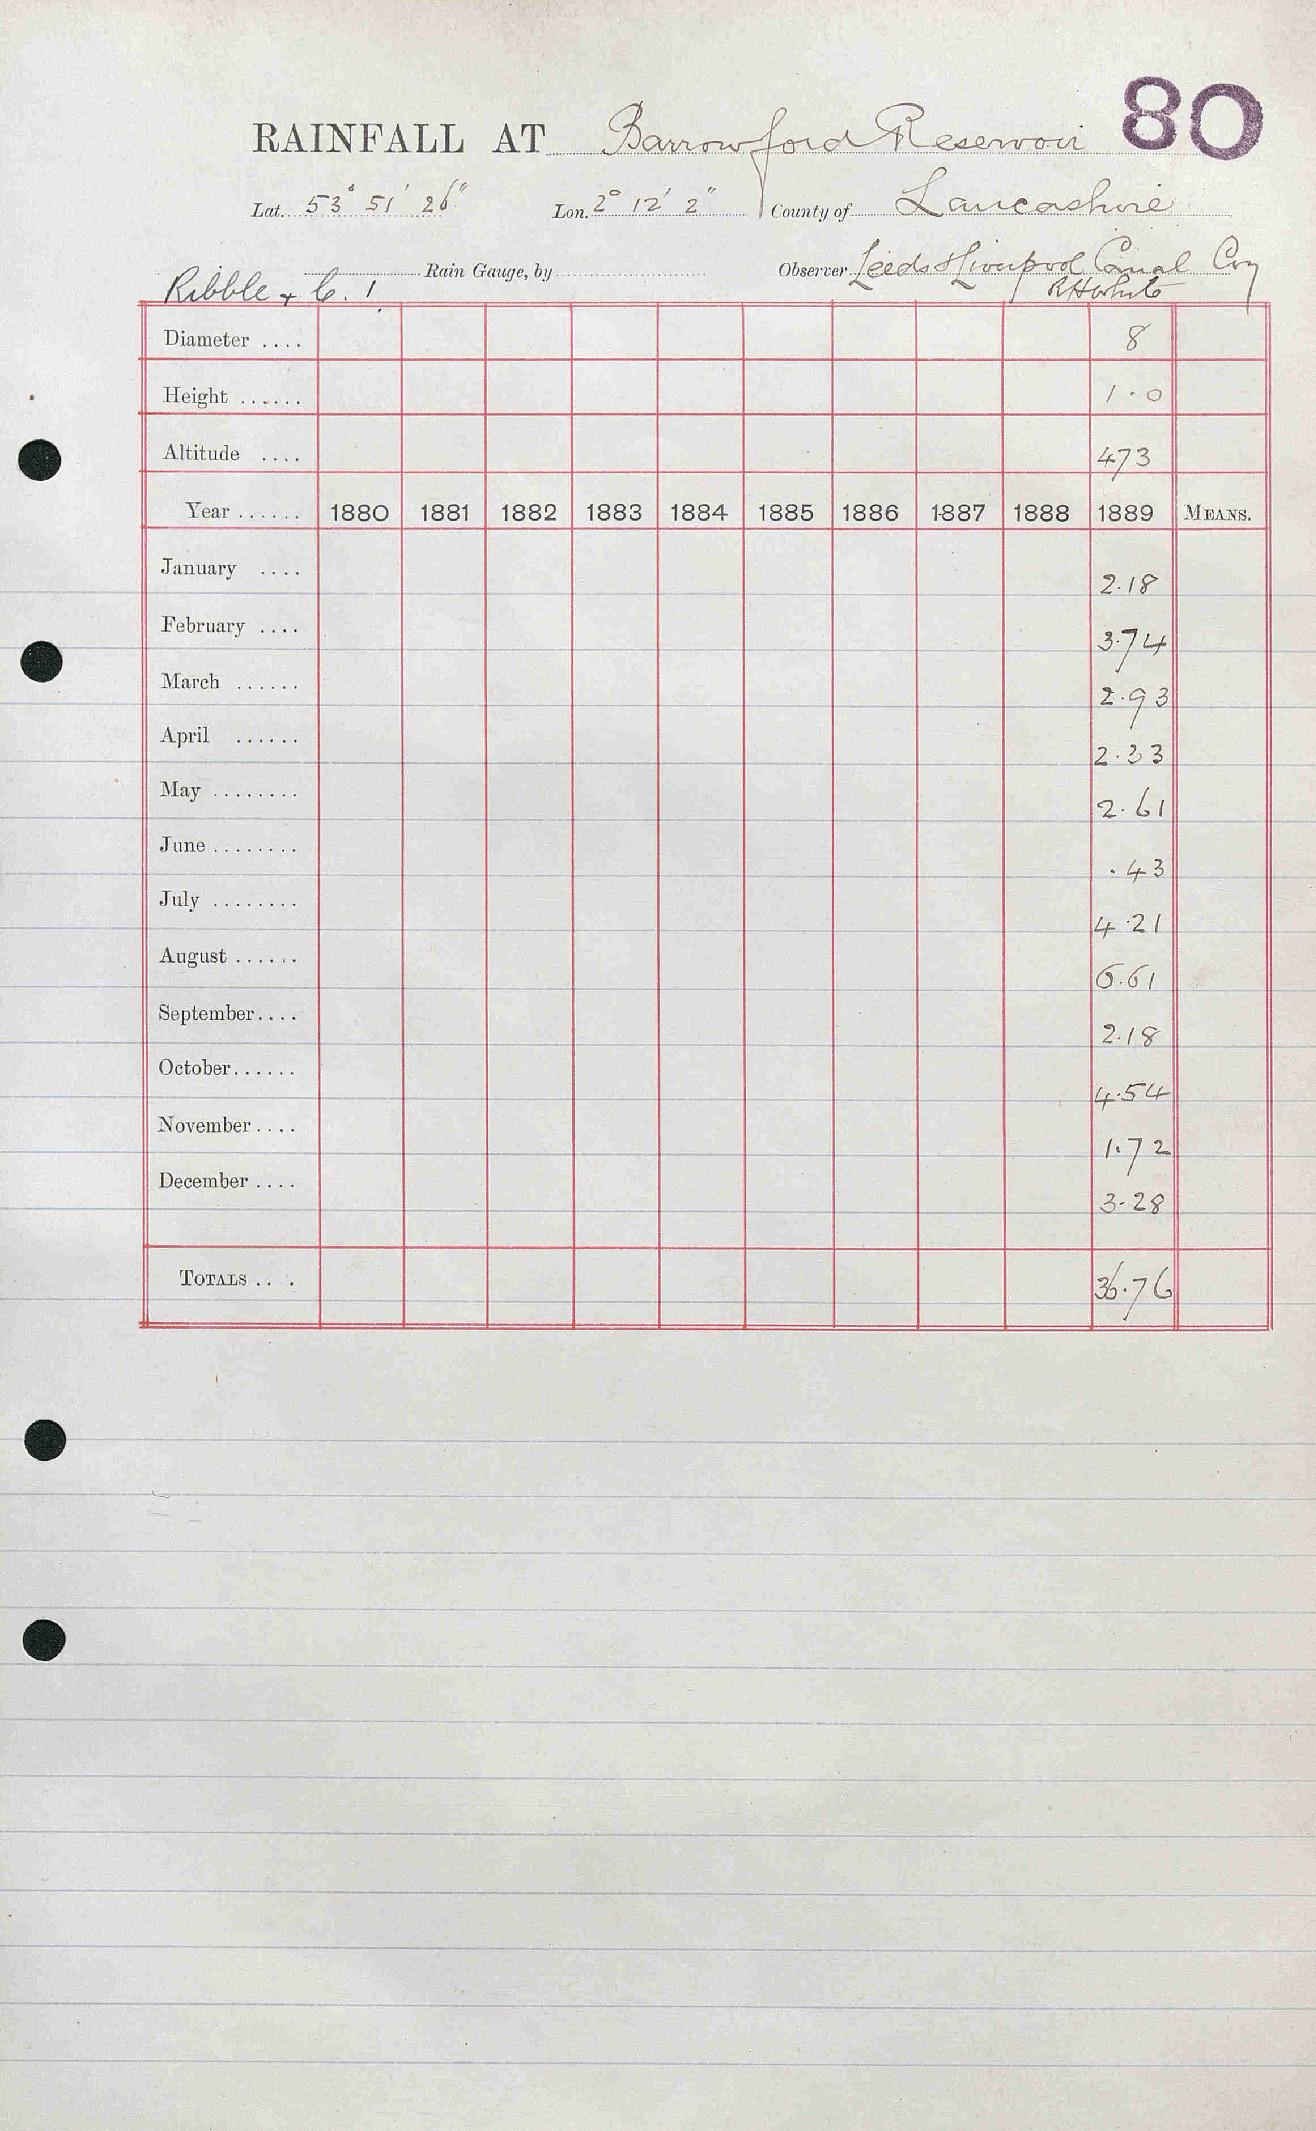 80
RAINFALL AT Barrowford Reservoir
Lat. 53° 51' 26" Lon. 2° 12' 2" County of Lancashire
Rain Gauge, by Observer Leeds & Liverpool Canal Coy
Ribble + C. 1 RHWhite
Diameter .... 8
Height ...... 1.0
Altitude .... 473
Year ...... 1880 1881 1882 1883 1884 1885 1886 1887 1888 1889 MEANS.
January .... 2.18
February .... 3.74
March ...... 2.93
April ...... 2.33
May ........ 2.61
June ........ .43
July ........ 4.21
August ...... 6.61
September.... 2.18
October...... 4.54
November.... 1.72
December .... 3.28
TOTALS .... 36.76